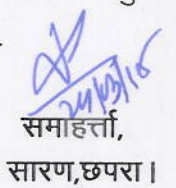 24/03/18
समाहर्त्ता,
सारण,छपरा।